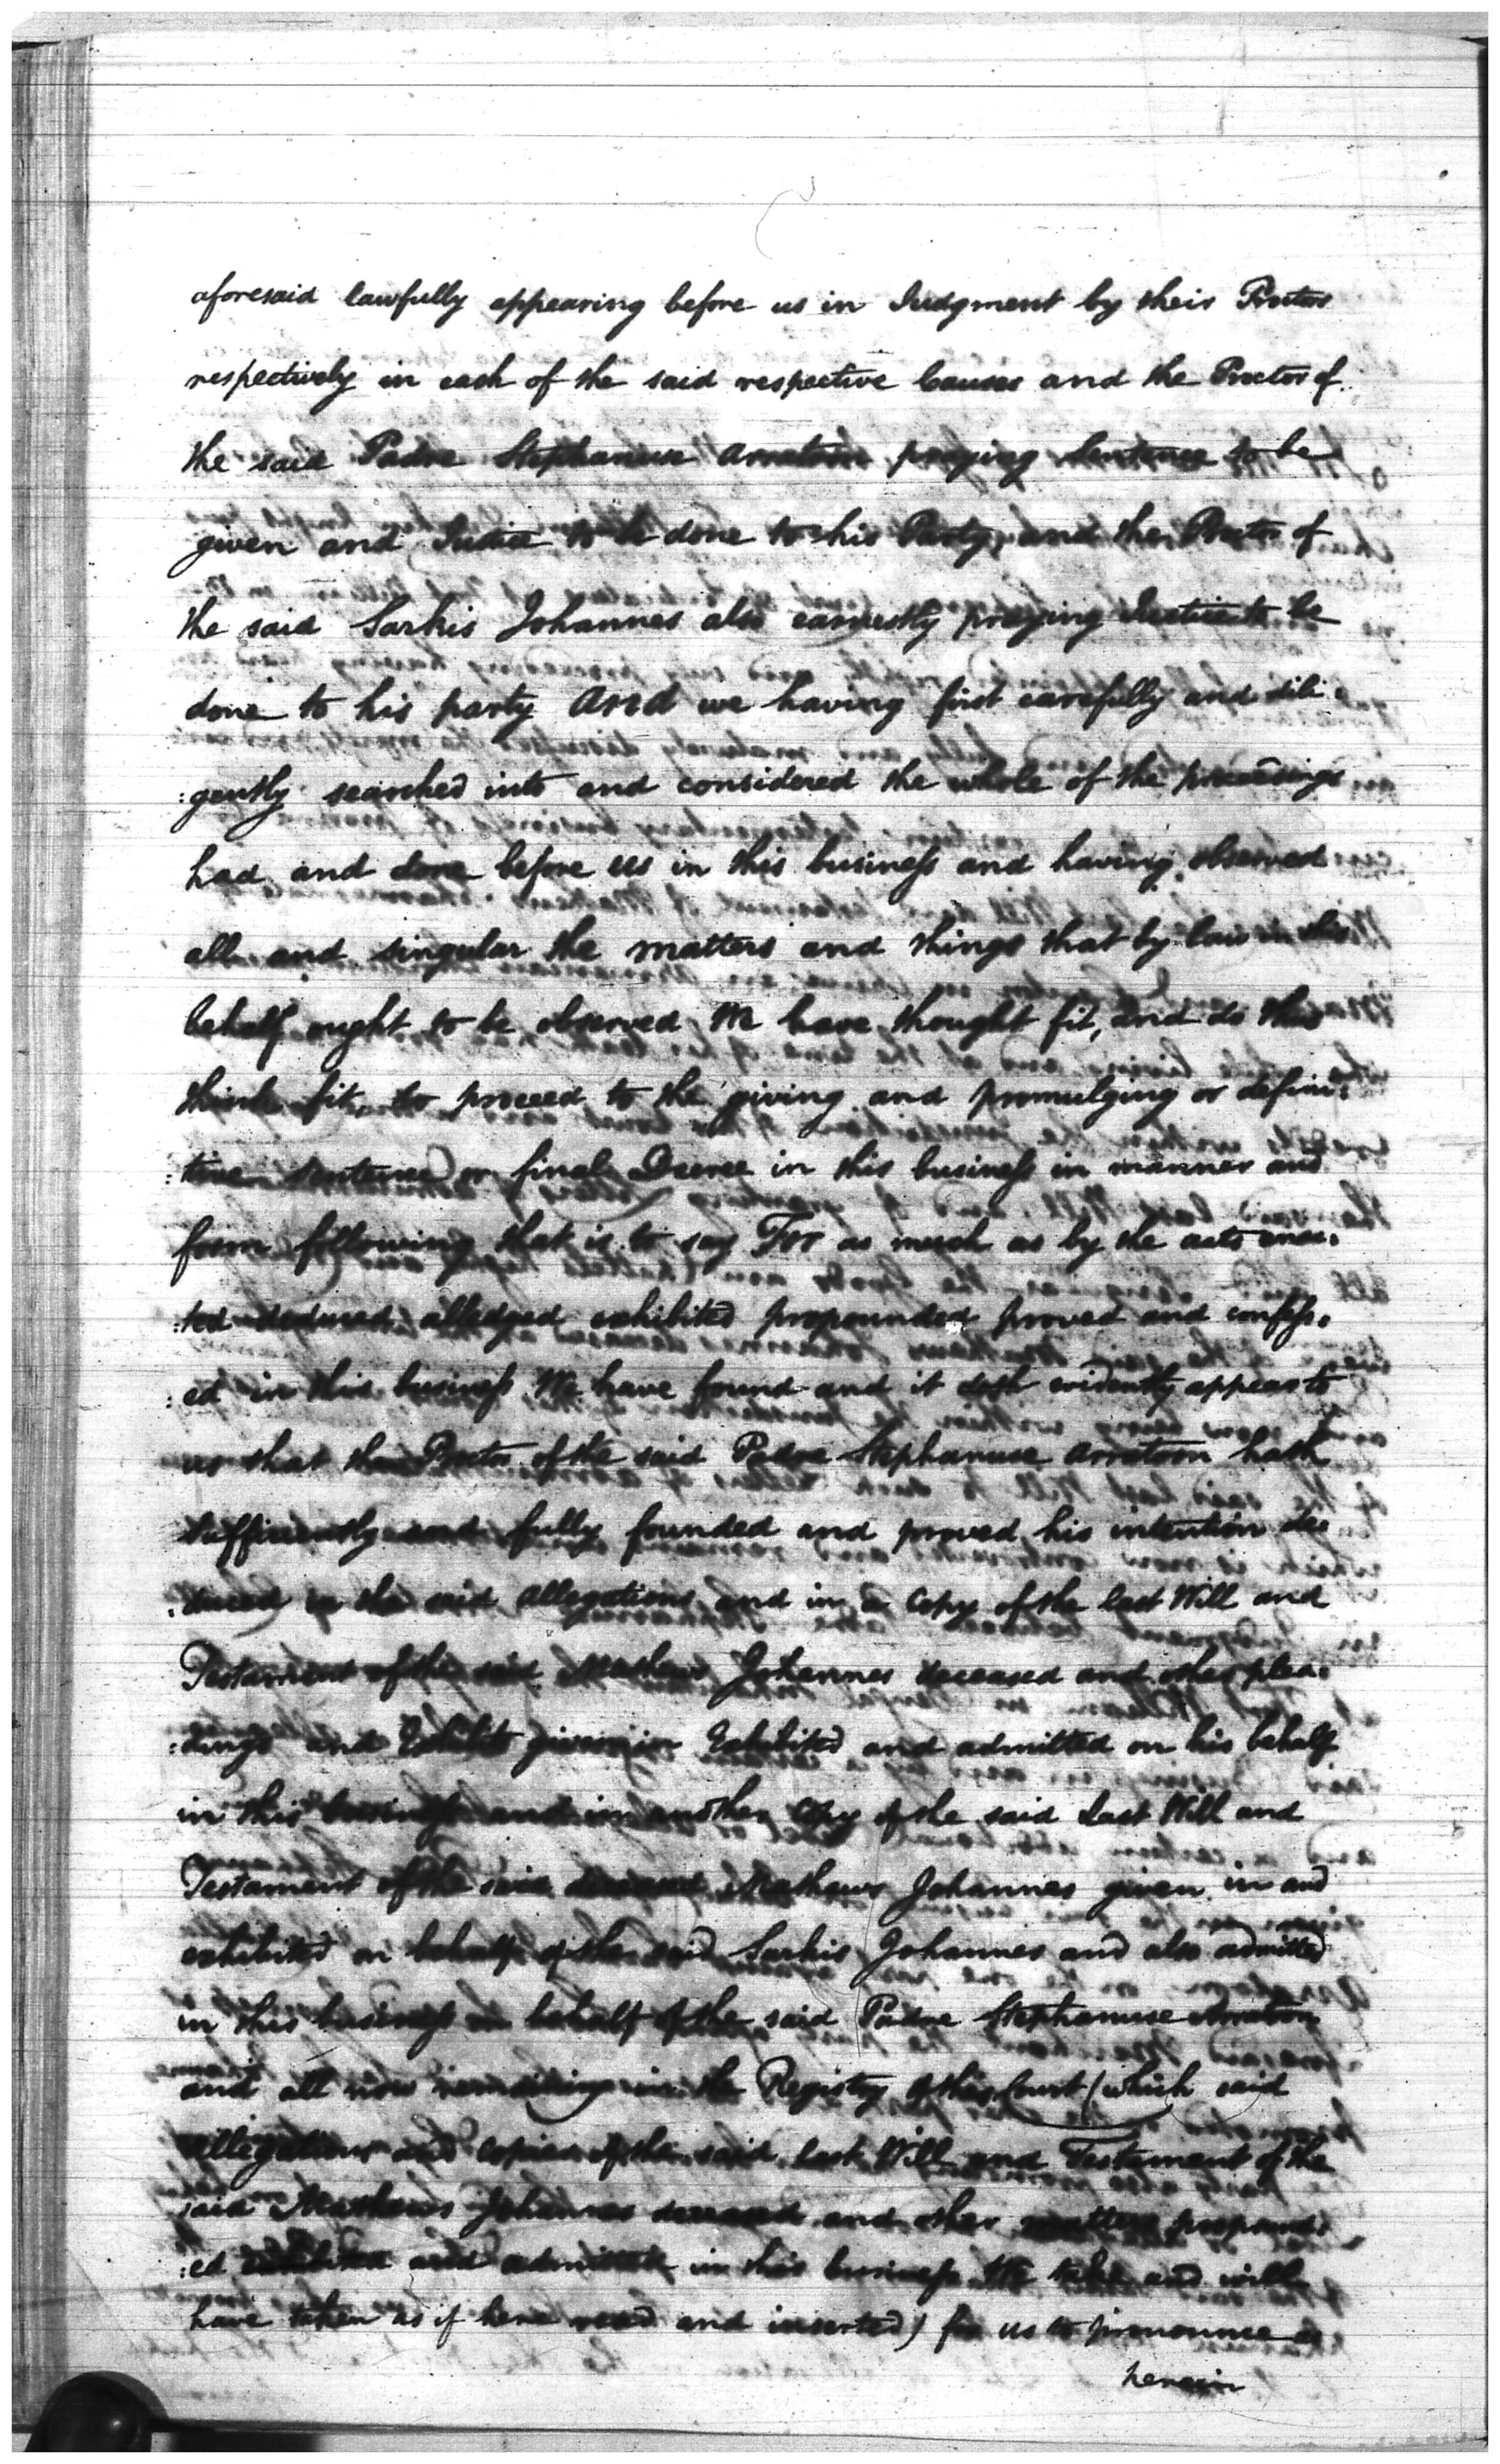 aforesaid lawfully appearing before us in Judgment by their Proctors
respectively in each of the said respective Causes and the Proctor of
the said Padre Stephanuse Arratoon praying Sentence to be
given and Justice to be done to his Party, and the Proctor of
the said Sarkis Johannes also earnestly praying Justice to be
done to his party And we having first carefully and dili:
:gently searched into and considered the whole of the proceedings
had and done before us in this business and having observed
all and singular the matters and things that by law in this
behalf ought to be observed We have thought fit, and do thus
think fit, to proceed to the giving and promulging or defini:
:tive sentence or final Decree in this business in manner and
form following that is to say For as much as by the acts enac:
:ted deduced alledged exhibited propounded proved and confess:
:ed in this business We have found and it doth evidently appear to
us that the Proctor of the said Padre Stephanuse Arratoon hath
sufficiently and fully founded and proved his intention de:
:duced in the said allegations and in a Copy of the last Will and
Testament of the said Mathews Johannes deceased and other plea:
:dings and Exhibits given in Exhibited and admitted on his behalf
in this business and in another Copy of the said Last Will and
Testament of the said deceased Mathews Johannes given in and
exhibited on behalf of the said Sarkis Johannes and also admitted
in this business on behalf of the said Padre Stephanuse Arratoon
and all now remaining in the Registry of this Court (which said
allegations and copies of the said Last Will and Testament of the
said Mathews Johannes deceased and other matters propound:
:ed exhibited and admitted in this business We take and will
have taken as if here read and inserted) for us to pronounce as
herein